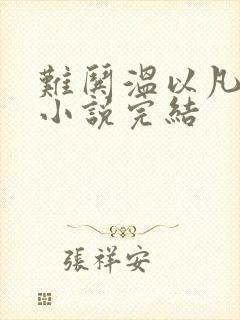 難鬨溫以凡
小說完結
張祥安